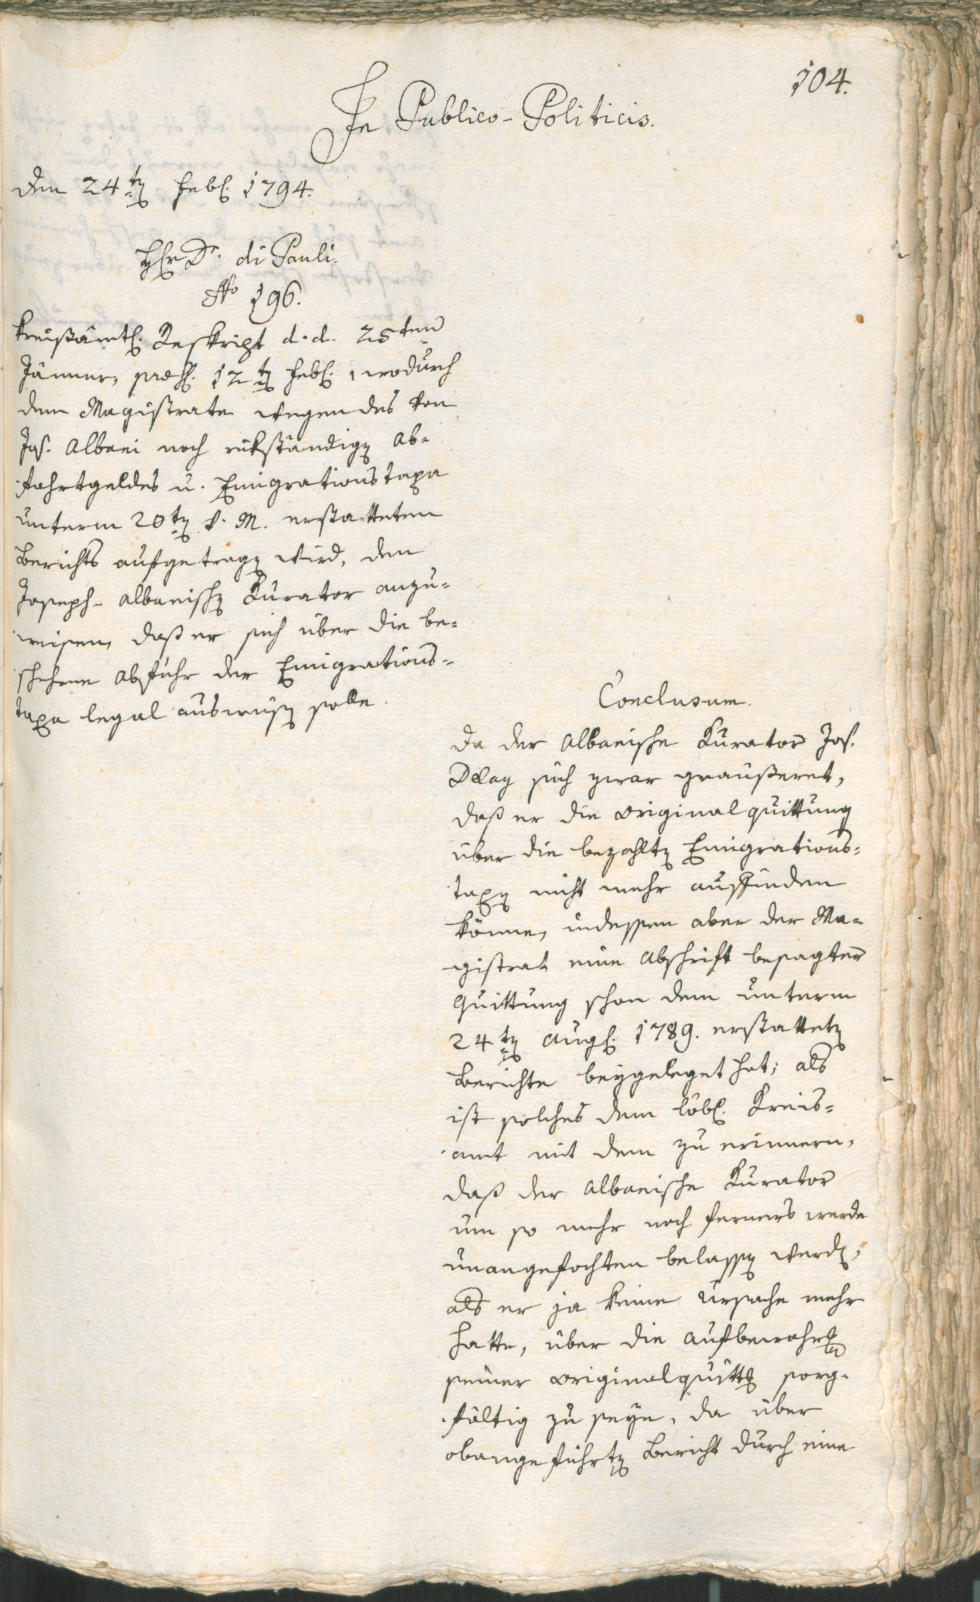 104.
In Publico-Politicis.
Den 24ten Feb. 1794.
Hr Dr. di Pauli.
No 196.
Kreißämtl. Reskript d. d. 25ten
Jänner, præs. 12ten Feb., wodurch
dem Magistrate wegen des von
Jos. Albani noch rükständigen Ab-
fahrtgeldes u. Emigrationstaxa
unterm 20ten v. M. erstatteten
Berichts aufgetragen wird, dem
Joseph-Albanischen Kurator anzu-
weisen, daß er sich über die be-
schehene Abfuhr der Emigrations-
taxa legal ausweisen solle.
Conclusum.
Da der Albanische Kurator Jos.
Delag sich zwar geäußeret,
daß er die Originalquittung
über die bezahlten Emigrations-
taxen nicht mehr ausfinden
könne, indessen aber der Ma-
gistrat eine Abschrift besagter
Quittung schon dem unterm
24ten Aug. 1789. erstatteten
Berichte beygeleget hat; als
ist solches dem löbl. Kreis-
amt mit dem zu erinnern,
daß der Albanische Kurator
um so mehr noch ferners werde
unangefochten belassen werden,
als er ja keine Ursache mehr
hatte, über die Aufbewahrung
seiner Originalquittung sorg-
fältig zu seyn, da über
obangeführten Bericht durch eine